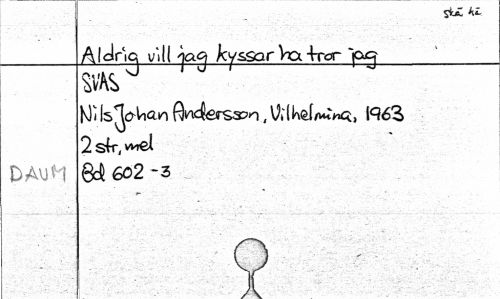 skä hä
Aldrig vill jag kyssar ha tror jag
SVAS
Nils Johan Andersson, Vilhelmina, 1963
2 str, mel
DAUM Bd 602-3